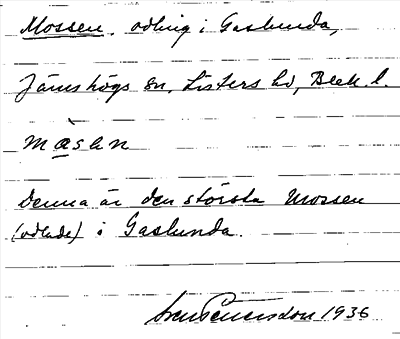 Mossen, odling i Gaslunda,
Jämshögs sn, Listers hd, Blek. l.
mòsen
Denna är den största Mossen
(odlade) i Gaslunda.
1936